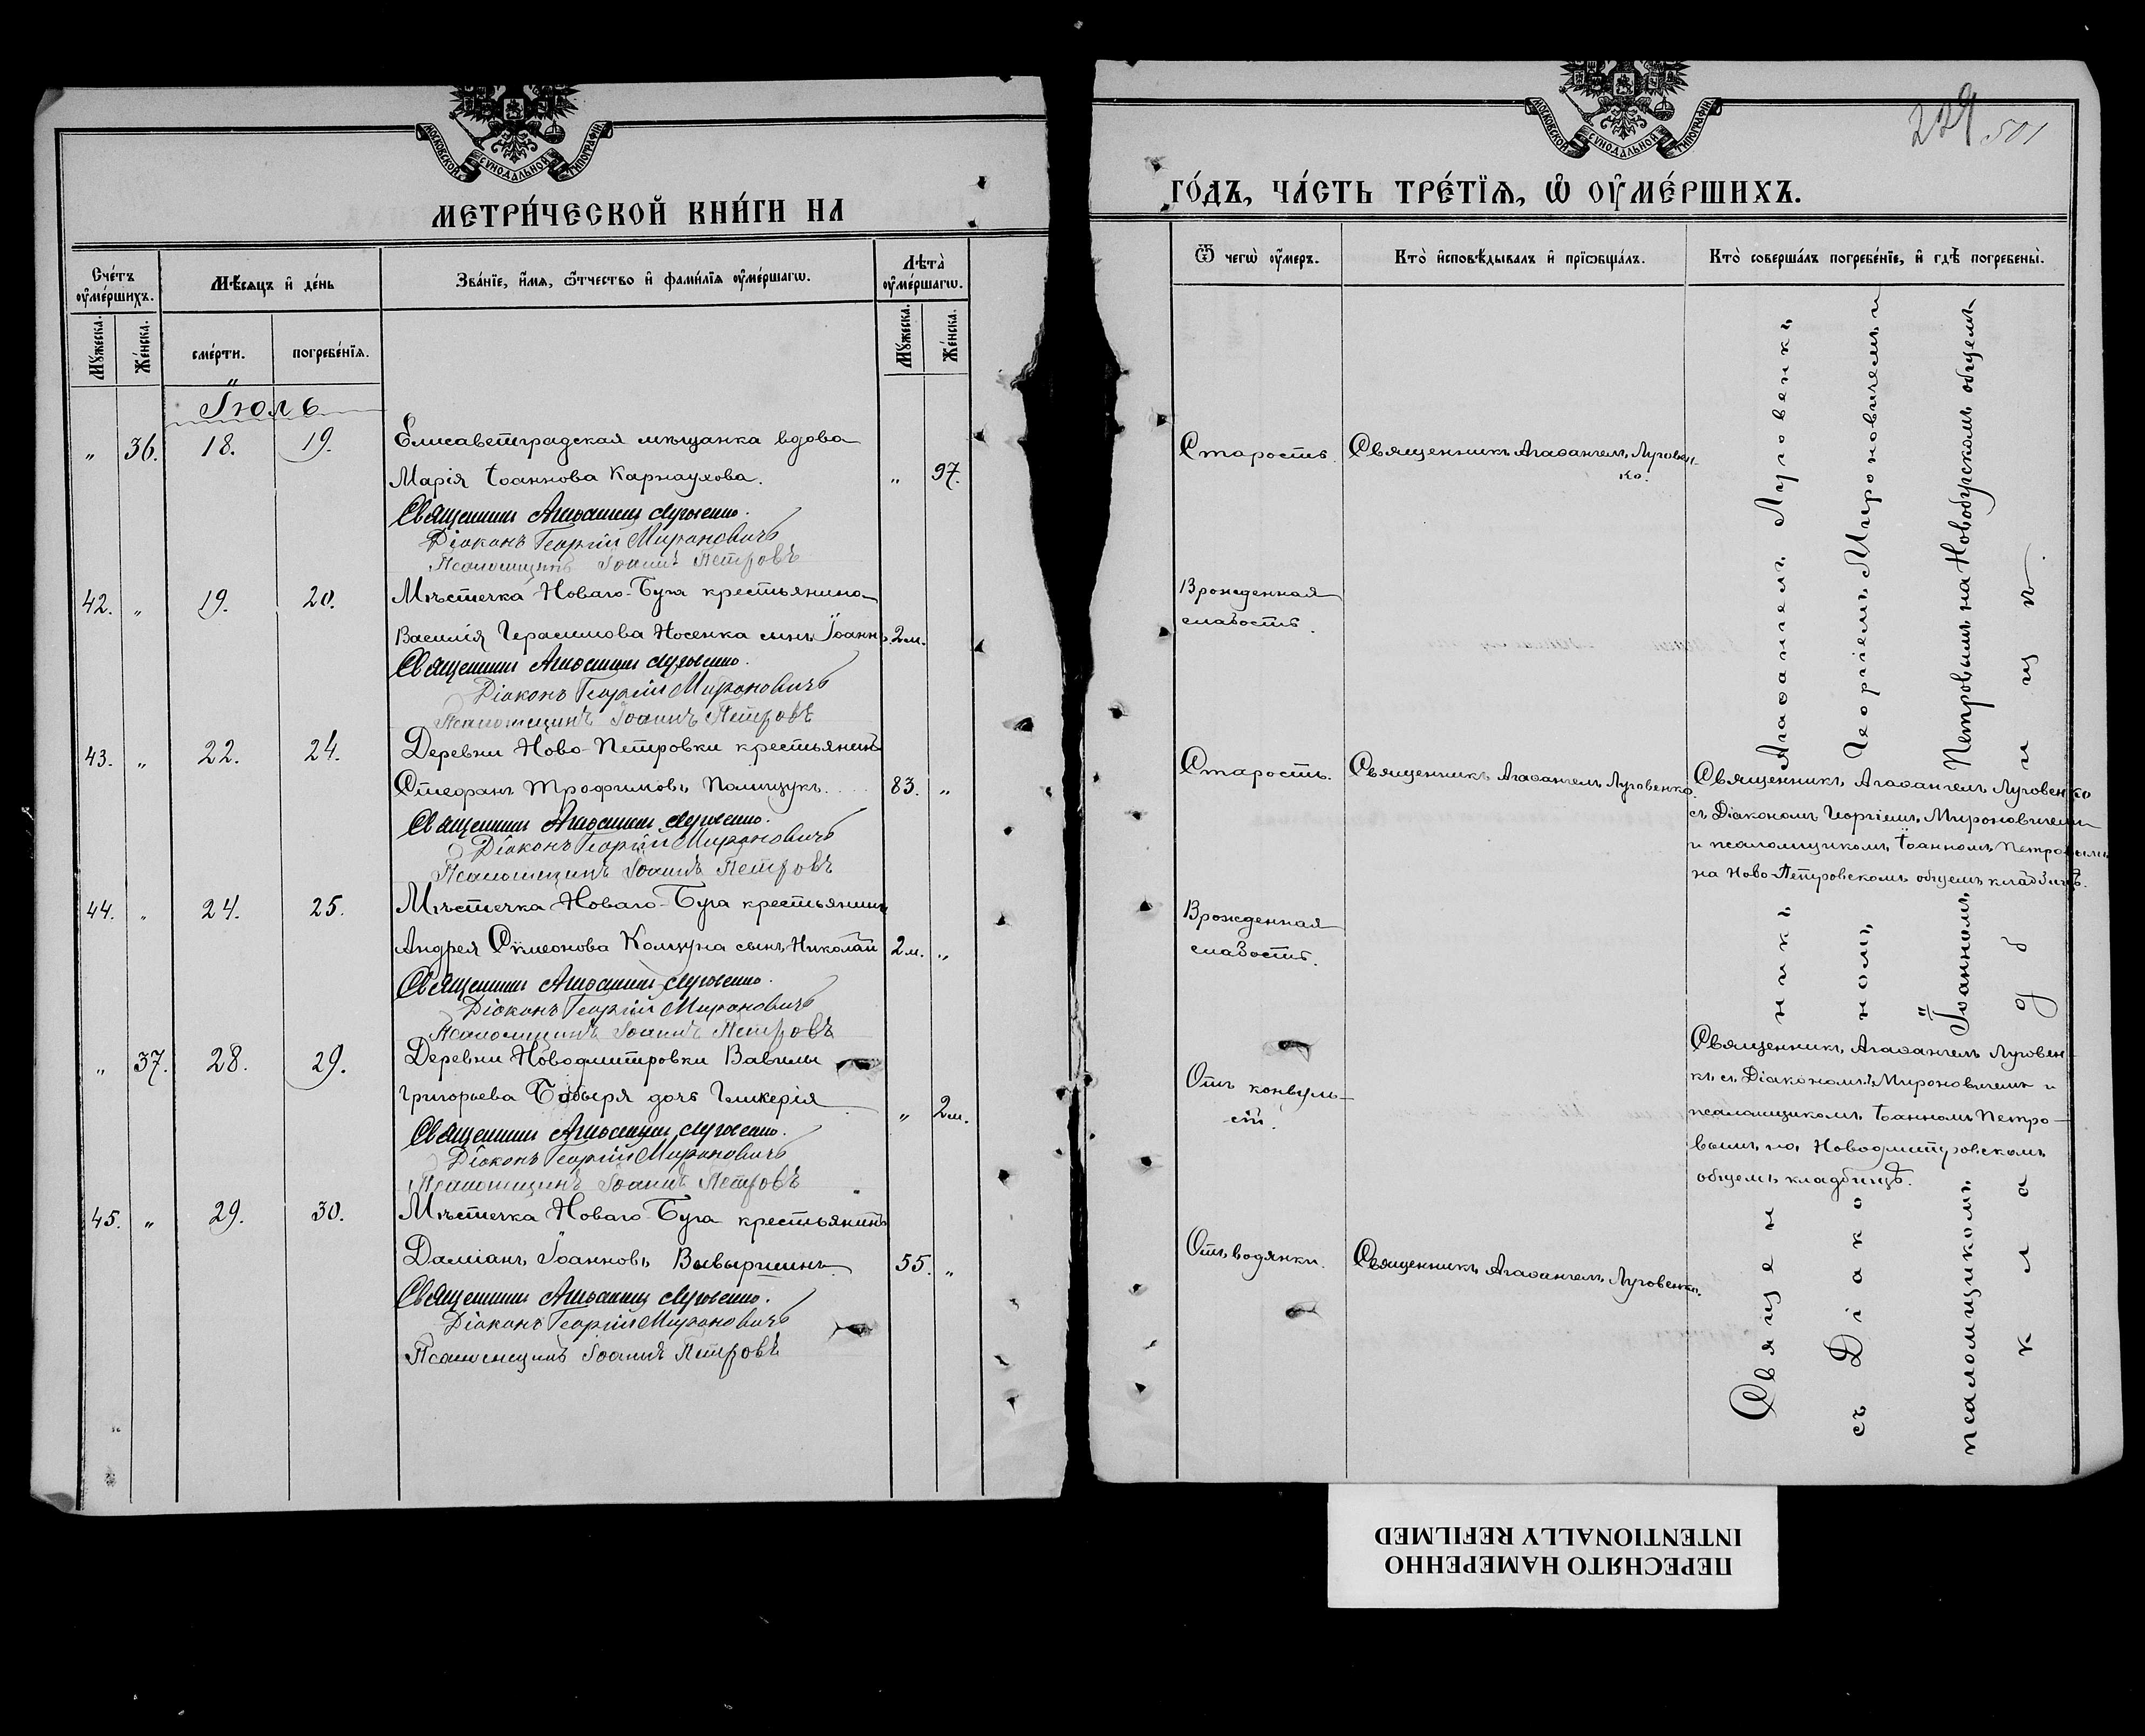 МОСКОВСКОЙ СУНОДАЛЬНОЙ ТИПОГРАФІИ
МЕТРИ́ЧЕСКОЙ КНИ́ГИ НА
Сче́тъ ᲂу҆ме́ршихъ.
Мѣ́сяцъ и҆ де́нь
Зва́нїе, и҆́мѧ, ѿтчество и҆ фами́лїѧ ᲂу҆ме́ршагѡ.
Лѣ́та ᲂу҆ме́ршагѡ.
Мꙋ́жеска.
Же́нска.
сме́рти.
погребе́нїѧ.
Мꙋ́жеска.
Же́нска.
Іюль
„ 36. 18. 19. Елисаветградская мѣщанка вдова
Марія Іоаннова Карнаухова. „ 97.
Священникъ Агаѳангелъ Луговенко.
Діаконъ Георгій Мироновичъ
Псаломщикъ Іоаннъ Петровъ
42. „ 19. 20. Мѣстечка Новаго-Буга крестьянина
Василія Герасимова Носенка сынъ Іоаннъ 2 м.
Священникъ Агаѳангелъ Луговенко.
Діаконъ Георгій Мироновичъ
Псаломщикъ Іоаннъ Петровъ
43. „ 22. 24. Деревни Ново-Петровки крестьянинъ
Стефанъ Трофимовъ Полищукъ. 83. „
Священникъ Агаѳангелъ Луговенко.
Діаконъ Георгій Мироновичъ
Псаломщикъ Іоаннъ Петровъ
44. „ 24. 25. Мѣстечка Новаго-Буга крестьянина
Андрея Сѵмеонова сынъ Николай 2 м. „
Священникъ Агаѳангелъ Луговенко.
Діаконъ Георгій Мироновичъ
Псаломщикъ Іоаннъ Петровъ
„ 37. 28. 29. Деревни Новодмитровки Вавилы
Григорьева дочь Гликерія „ 2 м.
Священникъ Агаѳангелъ Луговенко.
Діаконъ Георгій Мироновичъ
Псаломщикъ Іоаннъ Петровъ
45. „ 29. 30. Мѣстечка Новаго-Буга крестьянинъ
Даміанъ Іоанновъ 55. „
Священникъ Агаѳангелъ Луговенко.
Діаконъ Георгій Мироновичъ
Псаломщикъ Іоаннъ Петровъ
МОСКОВСКОЙ СУНОДАЛЬНОЙ ТИПОГРАФІИ
229 501
ГО́ДЪ, ЧА́СТЬ ТРЕ́ТЇѦ, Ѽ ОУ҆МЕ́РШИХЪ.
Ѿ чегѡ̀ ᲂу҆́меръ.
Кто̀ и҆сповѣ́дывалъ и҆ прїѡбща́лъ.
Кто̀ соверша́лъ погребе́нїе, и҆ гдѣ̀ погребены̀.
Старость. Священникъ Агаѳангелъ Луговен-
ко.
Врожденная
слабость.
Старость. Священникъ Агаѳангелъ Луговенко.
Священникъ Агаѳангелъ Луговенко
съ Діакономъ Георгіемъ Мироновичемъ
и псаломщикомъ Іоанномъ Петровымъ
на Ново-Петровскомъ общемъ кладбищѣ.
Врожденная
слабость.
Отъ конвуль-
сій.
Священникъ Агаѳангелъ Луговен-
къ съ Діакономъ Мироновичемъ и
псаломщикомъ Іоанномъ Петро-
вымъ на Новодмитровскомъ
общемъ кладбищѣ.
Отъ водянки. Священникъ Агаѳангелъ Луговенко.
Священникъ Агаѳангелъ Луговенкъ
съ Діакономъ Георгіемъ Мироновичемъ и
псаломщикомъ Іоанномъ Петровымъ на Новобугскомъ общемъ
кладбищѣ.
ПЕРЕСНЯТО НАМЕРЕННО
INTENTIONALLY REFILMED